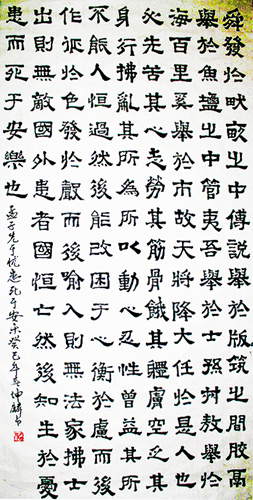 舜發於畎畝之中傅說舉於版築之間膠鬲
舉於魚鹽之中管夷吾舉於士孫叔敖舉於
海百里奚舉於市故天將降大任於是人也
必先苦其心志勞其筋骨餓其體膚空乏其
身行拂亂其所為所以動心忍性曾益其所
不能人恒過然後能改困於心衡於慮而後
作征於色發於聲而後喻入則無法家拂士
出則無敵國外患者國恒亡然後知生於憂
患而死于安樂也
孟子先生於憂患死于安樂癸巳年春坤麟書